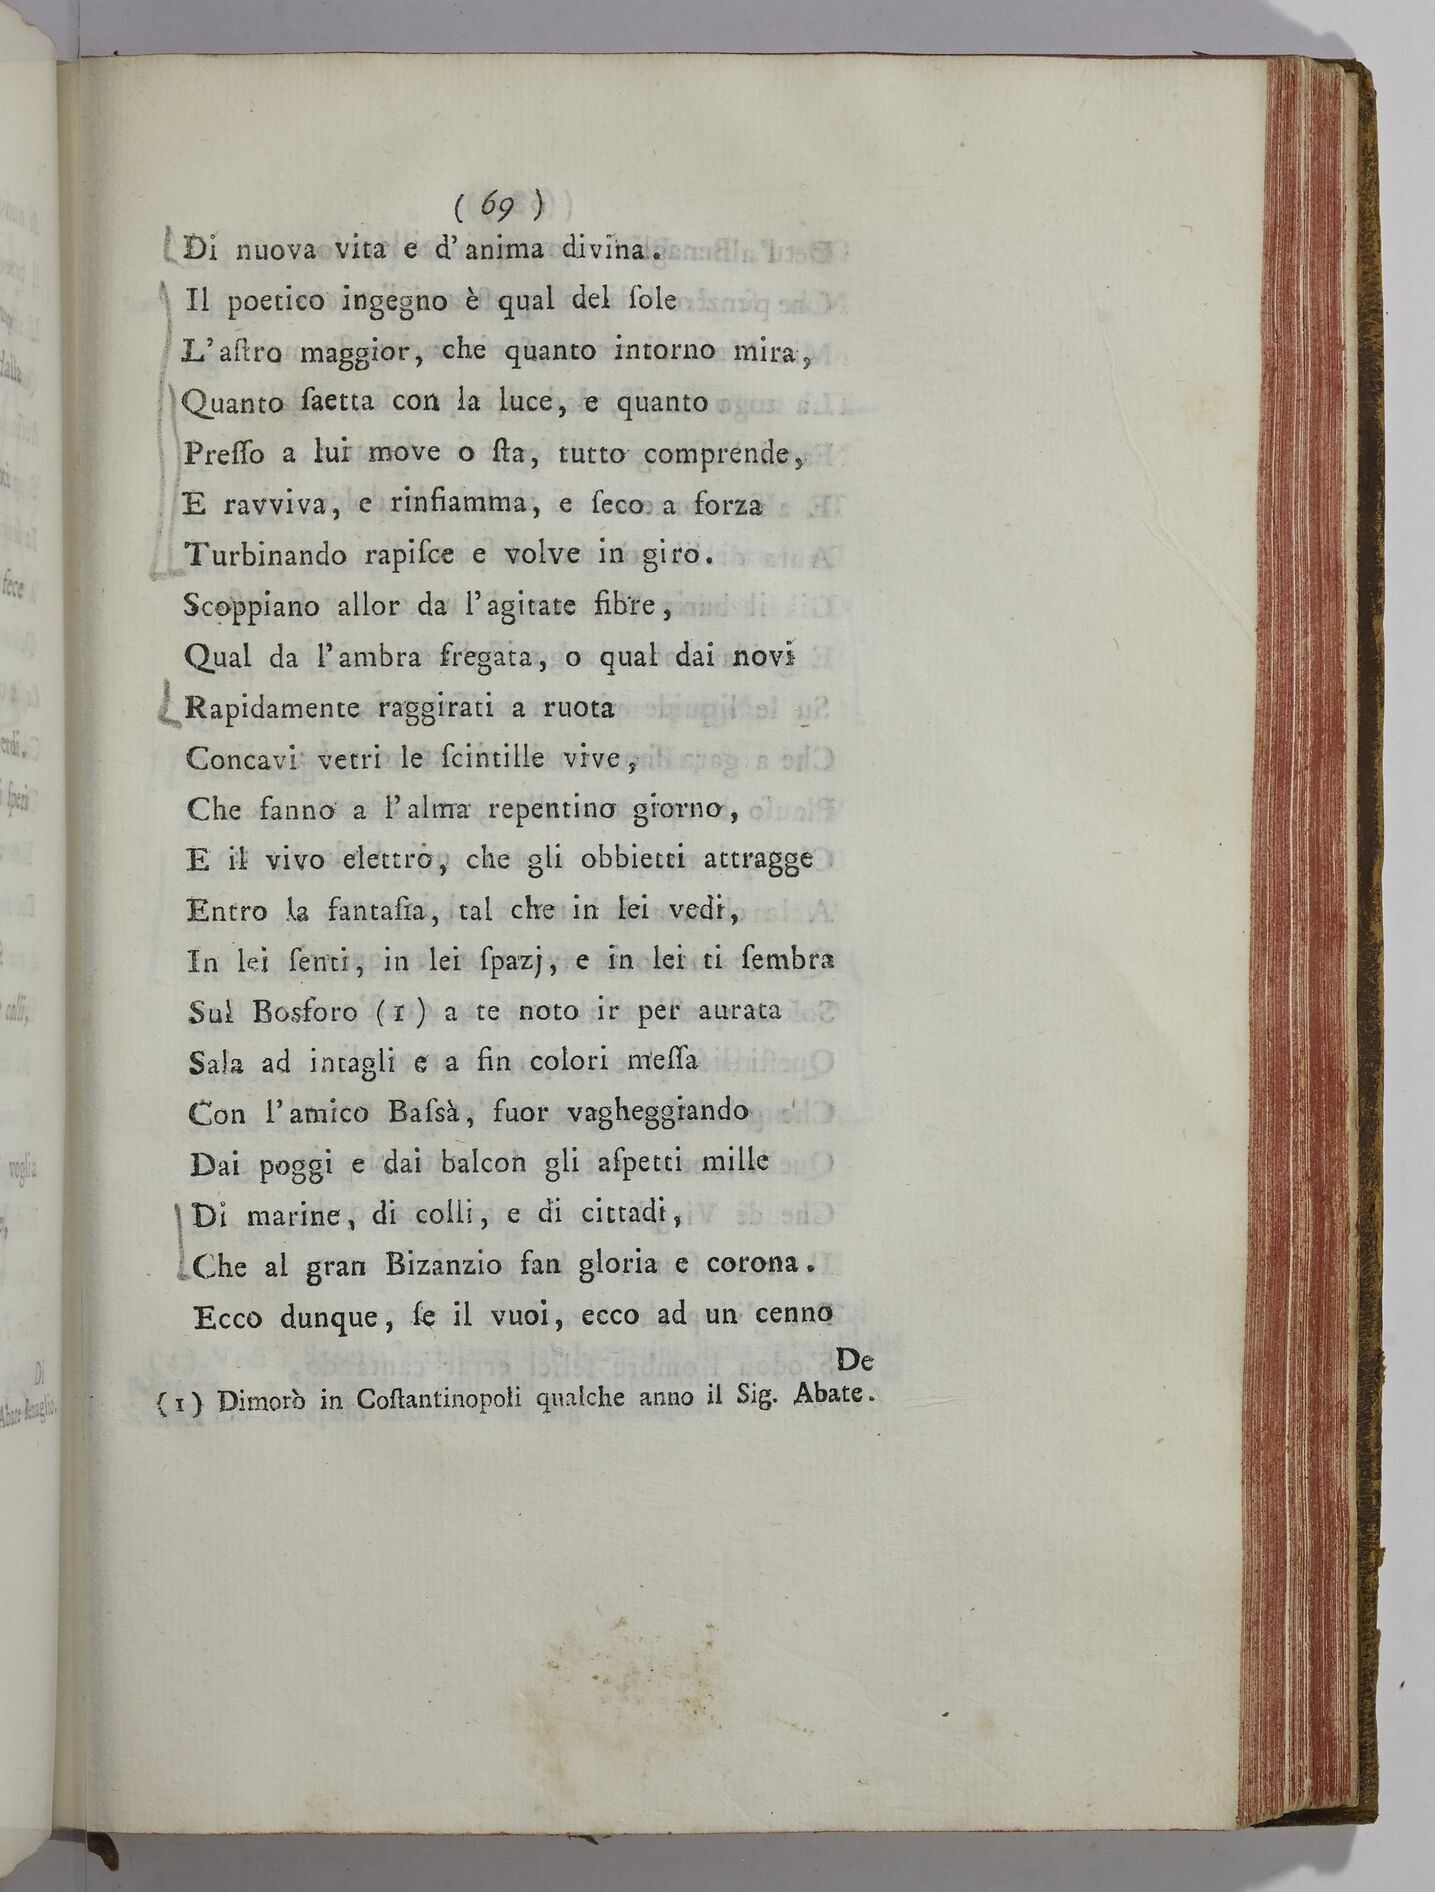 ( 69 )
Di nuova vita e d'anima divina.
Il poetico ingegno è qual del ſole
L'aſtro maggior, che quanto intorno mira,
Quanto ſaetta con la luce, e quanto
Preſſo a lui move o ſta, tutto comprende,
E ravviva, e rinfiamma, e ſeco a forza
Turbinando rapiſce e volve in giro.
Scoppiano allor da l'agitate fibre,
Qual da l'ambra fregata, o qual dai novi
Rapidamente raggirati a ruota
Concavi vetri le ſcintille vive,
Che fanno a l'alma repentino giorno,
E il vivo elettro, che gli obbietti attragge
Entro la fantaſia, tal che in lei vedi,
In lei ſenti, in lei ſpazj, e in lei ti ſembra
Sul Bosforo (1) a te noto ir per aurata
Sala ad intagli e a fin colori meſſa
Con l'amico Baſsà, fuor vagheggiando
Dai poggi e dai balcon gli aſpetti mille
Di marine, di colli, e di cittadi,
Che al gran Bizanzio fan gloria e corona.
Ecco dunque, ſe il vuoi, ecco ad un cenno
De
(1) Dimorò in Coſtantinopoli qualche anno il Sig. Abate.